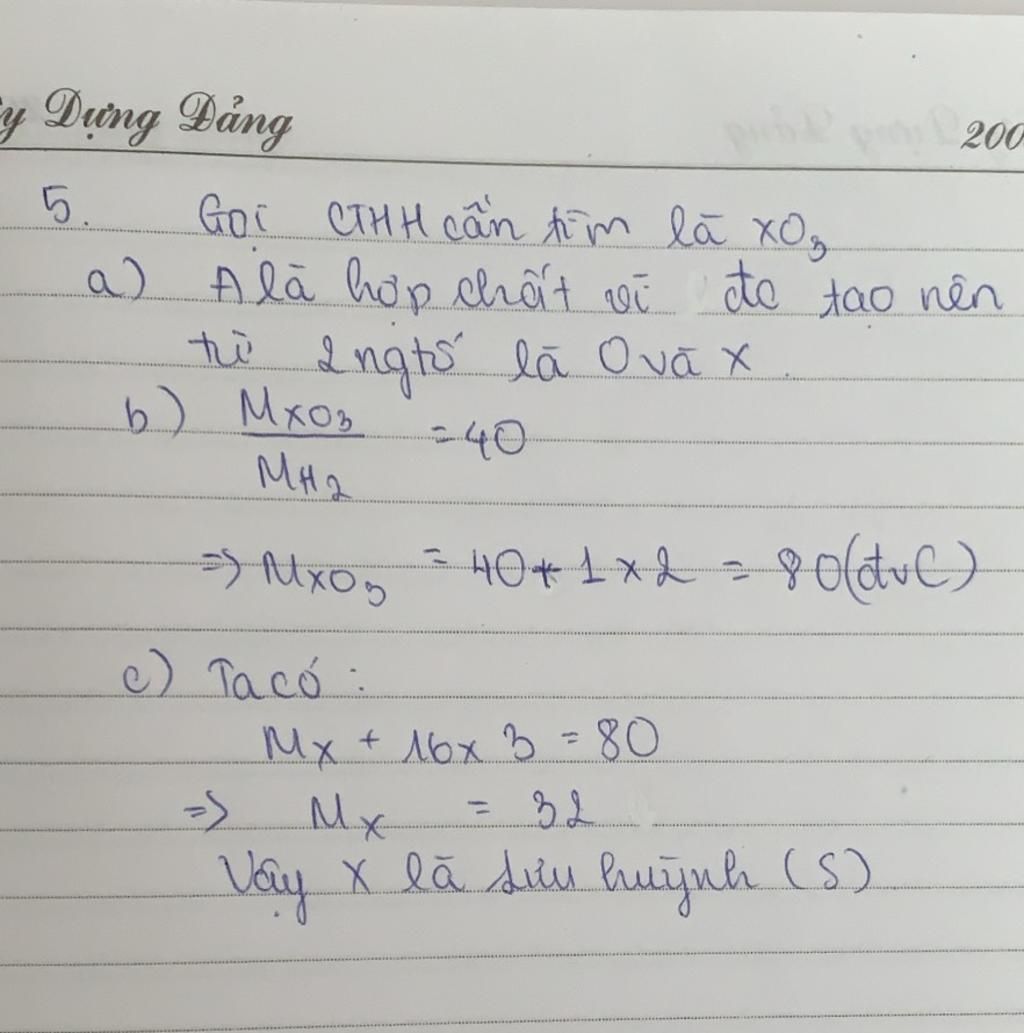 y Dựng Đảng
200
5. Gọi CTHH cần tìm là XO3
a) A là hợp chất vì đc tạo nên
từ 2 ngtố là O và X.
b) MXO3 / MH2 = 40
=> MXO3 = 40 * 1 x 2 = 80 (đvC)
c) Ta có :
MX + 16 x 3 = 80
=> MX = 32
Vậy X là lưu huỳnh (S)